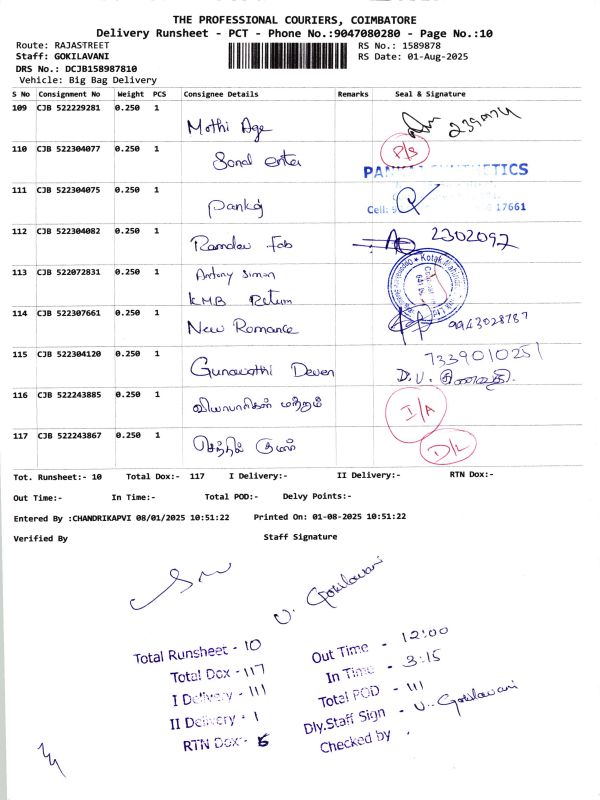 THE PROFESSIONAL COURIERS, COIMBATORE
Delivery Runsheet - PCT - Phone No.:9047080280 - Page No.:10
Route: RAJASTREET
Staff: GOKILAVANI
DRS No.: DCJB158987810
Vehicle: Big Bag Delivery
RS No.: 1589878
RS Date: 01-Aug-2025
S No Consignment No Weight PCS Consignee Details Remarks Seal & Signature
109 CJB 522229281 0.250 1 Mothi Age
110 CJB 522304077 0.250 1 Sonal enter P/S
111 CJB 522304075 0.250 1 Pankaj
Cell: 17661
112 CJB 522304082 0.250 1 Ramdev Fab 2302097
113 CJB 522072831 0.250 1 Antony Simon
KMB Return
114 CJB 522307661 0.250 1 New Romance 9943028787
115 CJB 522304120 0.250 1 Gunavathi Deven 7339010251
D.V. குணவதி
116 CJB 522243885 0.250 1 வியாபாரிகள் மற்றும் I/A
117 CJB 522243867 0.250 1 செந்தில் குமார் D/L
Tot. Runsheet:- 10 Total Dox:- 117 I Delivery:- II Delivery:- RTN Dox:-
Out Time:- In Time:- Total POD:- Delvy Points:-
Entered By :CHANDRIKAPVI 08/01/2025 10:51:22 Printed On: 01-08-2025 10:51:22
Verified By Staff Signature
V. Gokilavani
Total Runsheet - 10
Total Dox - 117
I Delivery - 111
II Delivery - 1
RTN Dox -
Out Time - 12:00
In Time - 3:15
Total POD - 111
Dly.Staff Sign - V. Gokilavani
Checked by